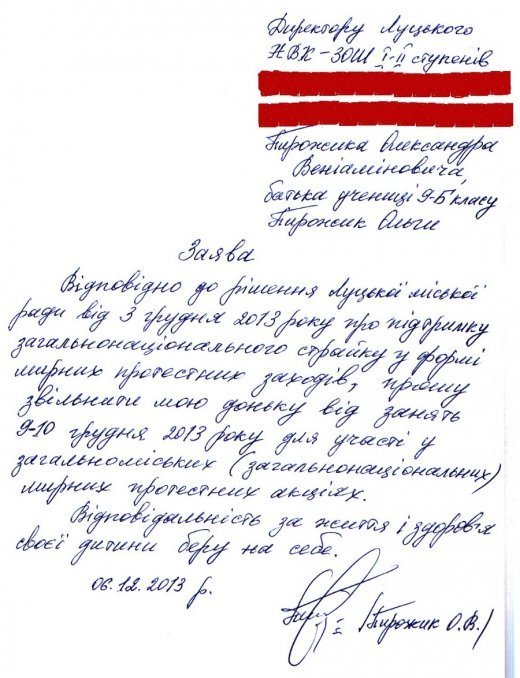 Директору Луцького
НВК-ЗОШ I-II ступенів
Пирожика Олександра
Веніаміновича,
батька учениці 9-Б класу
Пирожик Ольги
Заява
Відповідно до рішення Луцької міської
ради від 3 грудня 2013 року про підтримку
загальнонаціонального страйку у формі
мирних протестних заходів, прошу
звільнити мою доньку від занять
9-10 грудня 2013 року для участі у
загальноміських (загальнонаціональних)
мирних протестних акціях.
Відповідальність за життя і здоров'я
своєї дитини беру на себе.
06.12.2013 р.
/Пирожик О.В./